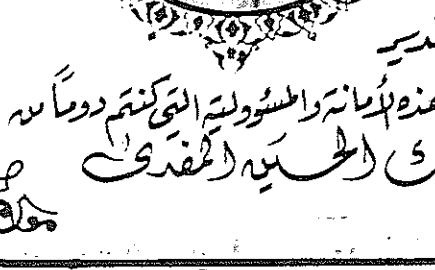 ـدير
هذه الأمانة والمسؤولية التي كنتم دوماً من
الحسين المفدى